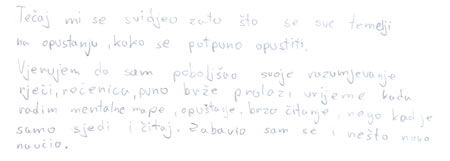 Tečaj mi se svidjeo zato što se sve temelji
na opuštanju, kako se potpuno opustiti.
Vjerujem da sam poboljšao svoje razumjevanje
rječi, rečenica, puno brže prolazi vrijeme kada
radim mentalne mape, opuštanje, brzo čitanje, nego kad je
samo sjedi i čitaj. Zabavio sam se i nešto novo
naučio.